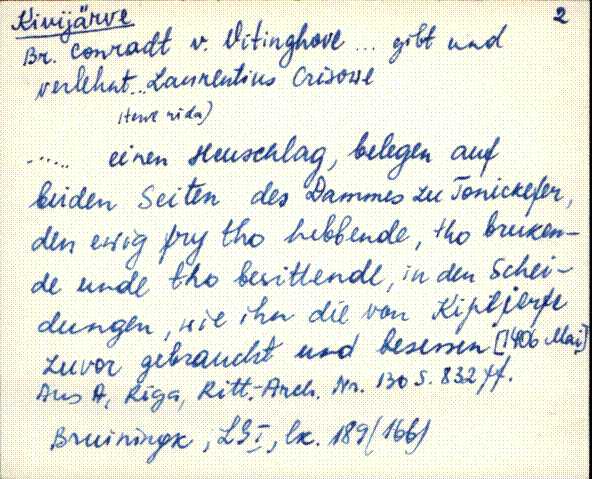 Kivijärve 2
Br. Conradt v. Vitinghove ... gibt und
verlehnt... Laurentius Crisowe
(terve rida)
...... einen Heuschlag, belegen auf
beiden Seiten des Dammes zu Tonickefer,
den ewig fry tho hebbende, tho bruken-
de unde tho besittende, in den Schei-
dungen, wie ihn die von Kipljerfe
zuvor gebraucht und besessen [1406 Mai]
Aus A, Riga, Ritt.-Arch. Nr. 130 S. 832 ff.
Bruiningk, LG I, lk. 189 (166)